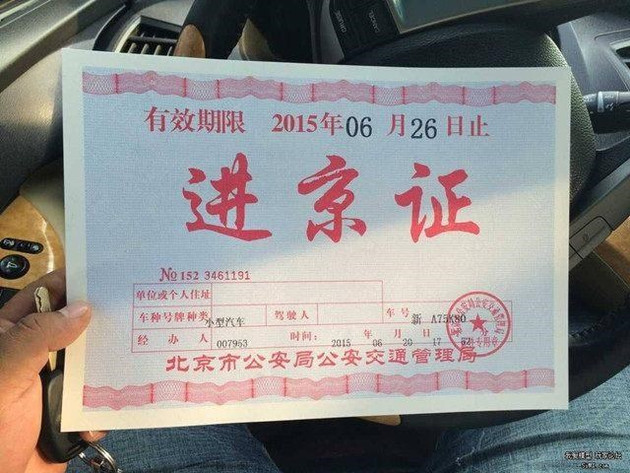 有效期限 2015年06月26日止
进京证
№152 3461191
单位或个人住址
车种号牌种类 小型汽车 驾驶人 车号 新 A75K80
经办人 007953 时间: 2015 年 06 月 20 17
北京市公安局公安交通管理局